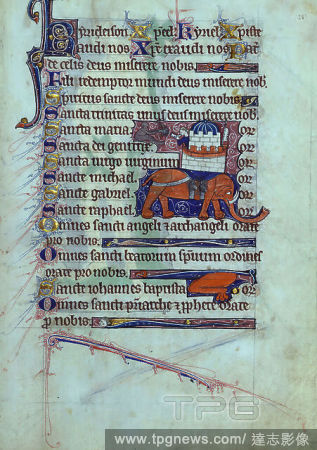 Kyrieleison Xpeel Kyriel Xpiste
audi nos Xpe exaudi nos Pat
de celis deus miserere nobis
Fili redemptor mundi deus miserere nob
Spiritus sancte deus miserere nobis
Sancta trinitas unus deus miserere nob
Sancta maria or
Sancta dei genitrix or
Sancta virgo virginum or
Sancte michael or
Sancte gabriel or
Sancte raphael or
Omnes sancti angeli & archangeli orate
pro nobis
Omnes sancti beatorum spirituum ordines
orate pro nobis
Sancte iohannes baptista or
Omnes sancti patriarche & prophete orate
p nobis
TPG
www.tpgnews.com / 達志影像